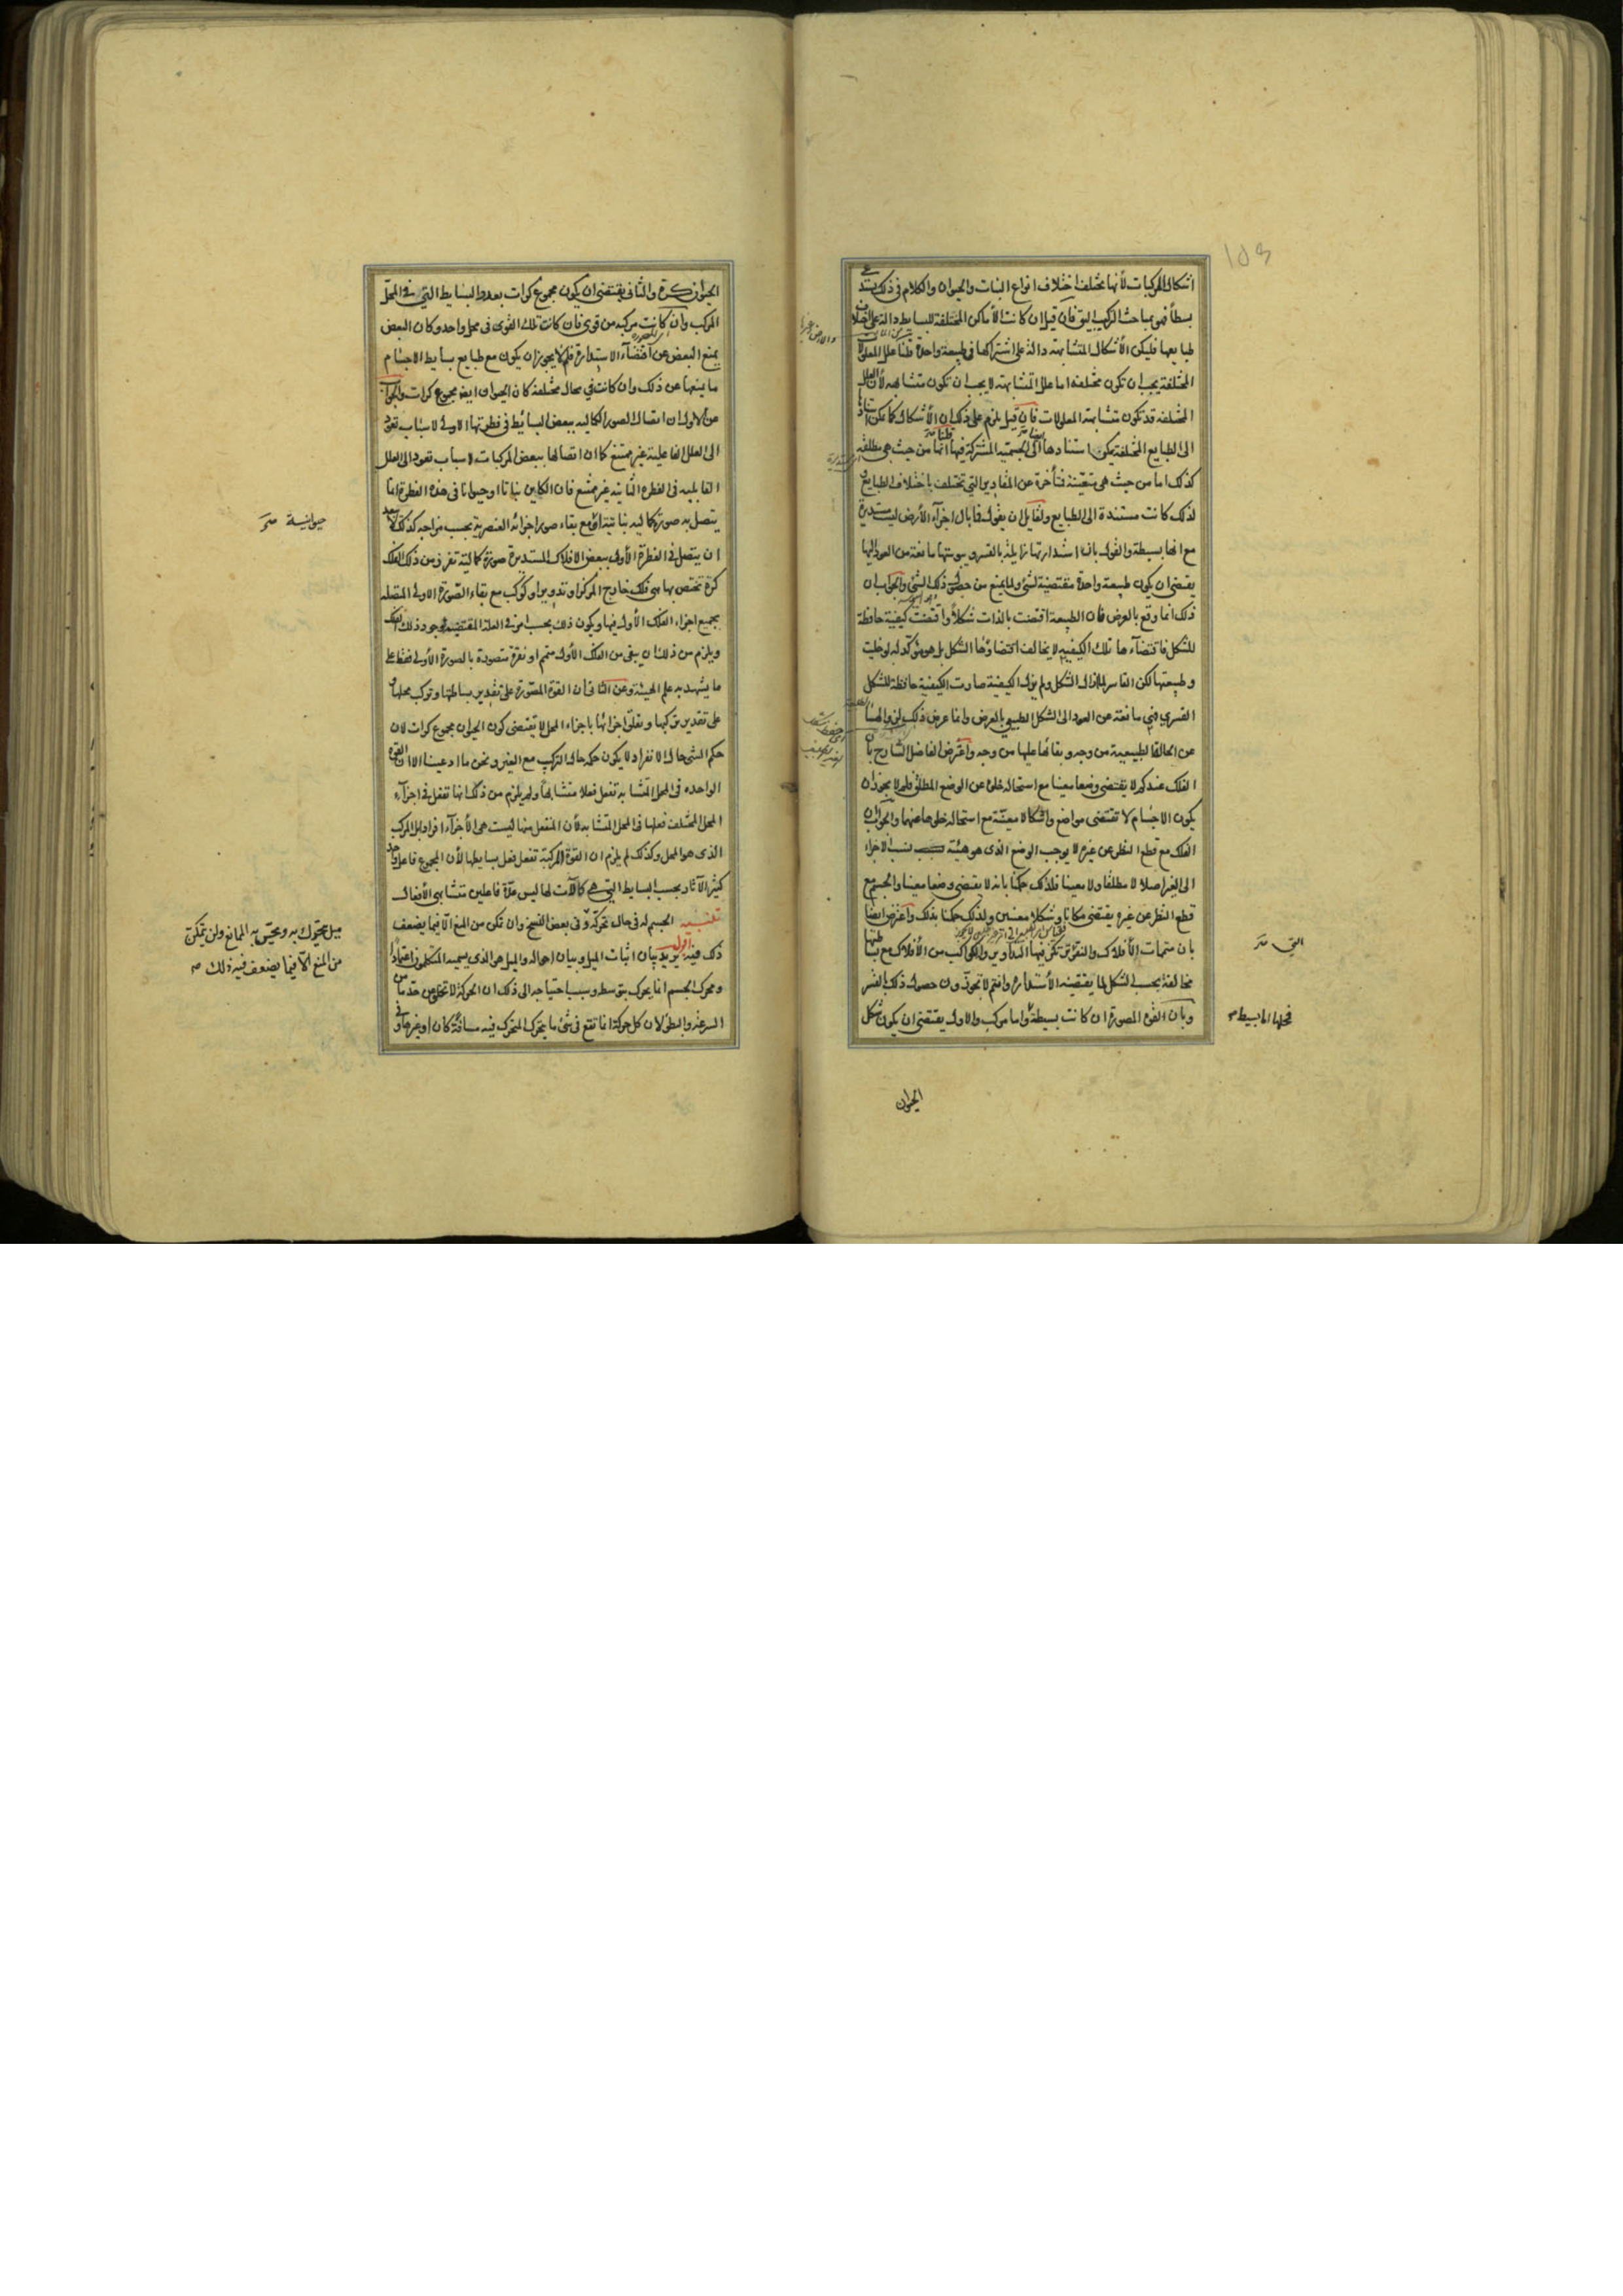 اشكال المركبات لأنها تختلف اختلاف انواع النبات والحيوان والكلام فى ذلك يستدعى
بسطاً فهو بمباحث التركيب اليق فان قيل ان كانت الأماكن المختلفة للبسايط دالة على اختلاف
طبايعها فليكن الأشكال المتشابهة دالة على اشتراكها فى طبيعة واحدة قلنا علل المعلولات
المختلفة يجب ان تكون مختلفة اما علل المتشابهة لا يجب ان تكون متشابهة لأن العلل
المختلفة قد تكون متشابهة المعلولات فان قيل يلزم على ذلك ان الأشكال كما يمكن استنادها
الى الطبايع المختلفة يمكن استنادها الى الجسمية المشتركة فيها انما من حيث هى مطلقة
كذلك اما من حيث هى متعينة فمتأخرة عن المقادير التى تختلف باختلاف الطبايع و
لذلك كانت مستندة الى الطبايع ولقايل ان يقول فما بال اجزاء الأرض ليست مستديرة
مع انها بسيطة والقول بان استدارتها زايلة بالقسر ويبوستها مانعة من العود اليها
يقتضى ان يكون طبيعة واحدة مقتضية لشئ ولما يمنع من حصول ذلك الشئ والجواب ان
ذلك انما وقع بالعرض فان الطبيعة اقتضت بالذات شكلاً واقتضت كيفية حافظة
للشكل فاقتضاءها تلك الكيفية لا يخالف اقتضاؤها الشكل بل هو مؤكد له لو خليت
وطبيعتها لكن القاسر لما ازال الشكل ولم يزل الكيفية صارت الكيفية حافظة للشكل
القسرى فهى مانعة عن العود الى الشكل الطبيعى بالعرض وانما عرض ذلك
عن الحالة الطبيعية من وجه وبقائها عليها من وجه واعترض الفاضل الشارح بان
الفلك عندكم لا يقتضى وضعا معينا مع استحالة خلوه عن الوضع المطلق فلم لا يجوز ان
يكون الاجسام لا تقتضى مواضع واشكالا معينة مع استحالة خلوها عنهما والجواب ان
الفلك مع قطع النظر عن غيره لا يوجب الوضع الذى هو هيئة بسبب نسب الاجزاء
الى الغير اصلا لا مطلقا ولا معينا فلذلك حكمنا بانه لا يقتضى وضعا معينا والجسم مع
قطع النظر عن غيره يقتضى مكانا وشكلا معينين ولذلك حكمنا بذلك واعترض ايضا
بان متمات الأفلاك والنقر التى تتمكن فيها التداوير والكواكب من الأفلاك مع بساطتها
مخالفة بحسب الشكل لما يقتضيه الأستدارة وانتم لا تجوزون حصول ذلك بالقسر
وبان القوة المصورة ان كانت بسيطة واما مركب والاول يقتضى ان يكون شكل
التى
فمحلها اما بسيط
الحيوان
الحيوان كرة والثانى يقتضى ان يكون مجموع كرات بعدد البسايط التى فى المحل
المركب وان كانت مركبة من قوى فان كانت تلك القوى فى محل واحد وكان البعض
يمنع البعض عن اقتضاء الاستدارة فلم لا يجوز ان يكون مع طبايع بسايط الاجسام
ما يمنعها عن ذلك وان كانت فى محال مختلفة كان الحيوان ايضا مجموع كرات والجواب
عن الاول ان اتصال الصور الكمالية ببعض البسايط فى فطرتها الاولى لاسباب تعود
الى العلل الفاعلية غير ممتنع كما ان اتصالها ببعض المركبات لاسباب تعود الى العلل
القابلية فى الفطرة الثانية غير ممتنع فان الكاين نباتا او حيوانا فى هذه الفطرة انما
يتصل به صورة كمالية نباتية او مع بقاء صور اجزائه العنصرية بحسب مزاجه كذلك لا يبعد
ان يتصل فى الفطرة الأولى ببعض الافلاك المستديرة صورة كمالية تفرز من ذلك الفلك
كرة تختص بها هى فلك خارج المركز او تدوير او كوكب مع بقاء الصورة الاولى المتصلة
بجميع اجزاء الفلك الأول فيها ويكون ذلك بحسب امر فى العلة المقتضية لوجود ذلك الفلك
ويلزم من ذلك ان يبقى من الفلك الأول متمم او نقرة متصورة بالصورة الأولى فقط على
ما يشهد به علم الهيئة وعن الثانى ان القوة المصورة على تقدير بساطتها وتركب محلها و
على تقدير تركبها وتعلق اجزائها باجزاء المحل لا تقتضى كون الحيوان مجموع كرات لان
حكم الشئ حال الانفراد لا يكون حكمه حال التركيب مع الغير ونحن ما ادعينا الا ان القوة
الواحدة فى المحل المتشابه تفعل فعلا متشابهاً ولم يلزم من ذلك انها تفعل فى اجزاء
المحل المختلف فعلها فى المحل المتشابه لأن المنفعل منها ليست هى الأجزاء افرادا بل المركب
الذى هو المحل وكذلك لم يلزم ان القوة المركبة تفعل فعل بسايطها لأن المجموع فاعل واحد
كثير الآثار بحسب البسايط التى هى كالآلات لها ليس عدة فاعلين متشابهى الأفعال
تنبيه الجسم له فى حال تحركه وفى بعض النسخ وان تمكن من المنع الا فيما يضعف
ذلك فيه اقول يريد بيان اثبات الميل وبيان احواله والميل هو الذى يسميه المتكلمون اعتمادا
ومحرك الجسم انما يحرك بتوسطه وسبب احتياجه الى ذلك ان الحركة لا تخلو عن حد ما من
السرعة والبطؤ لان كل حركة انما تقع فى شئ ما يتحرك المتحرك فيه مسافة كان او غيرها وفى
حيوانية
ميل يتحرك به ويحس به الممانع ولن يتمكن
من المنع الا فيما يضعف فيه ذلك